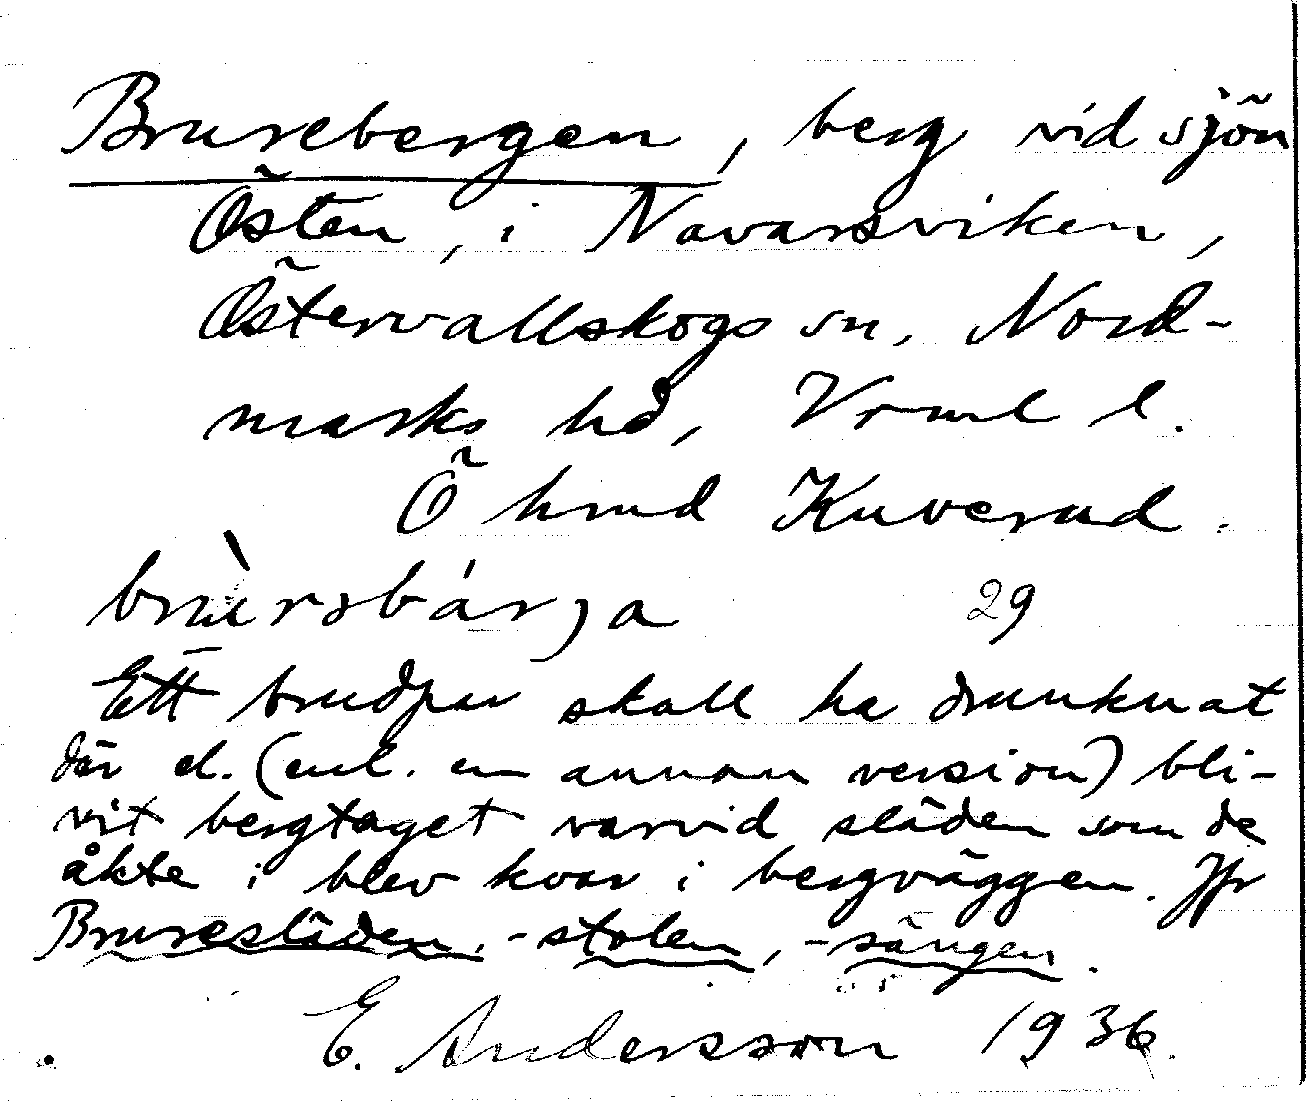 Brurebergen, berg vid sjön
Östen, i Navarsviken,
Östervallskogs sn, Nord-
marks hd, Vrml l.
Ö hmd Kuverud.
brùrsbárja 29
Ett brudpar skall ha drunknat
där el. (enl. en annan version) bli-
vit bergtaget varvid släden som de
åkte i blev kvar i bergväggen. Jfr
Bruresladen, -stolen, -sängen.
E. Andersson 1936.